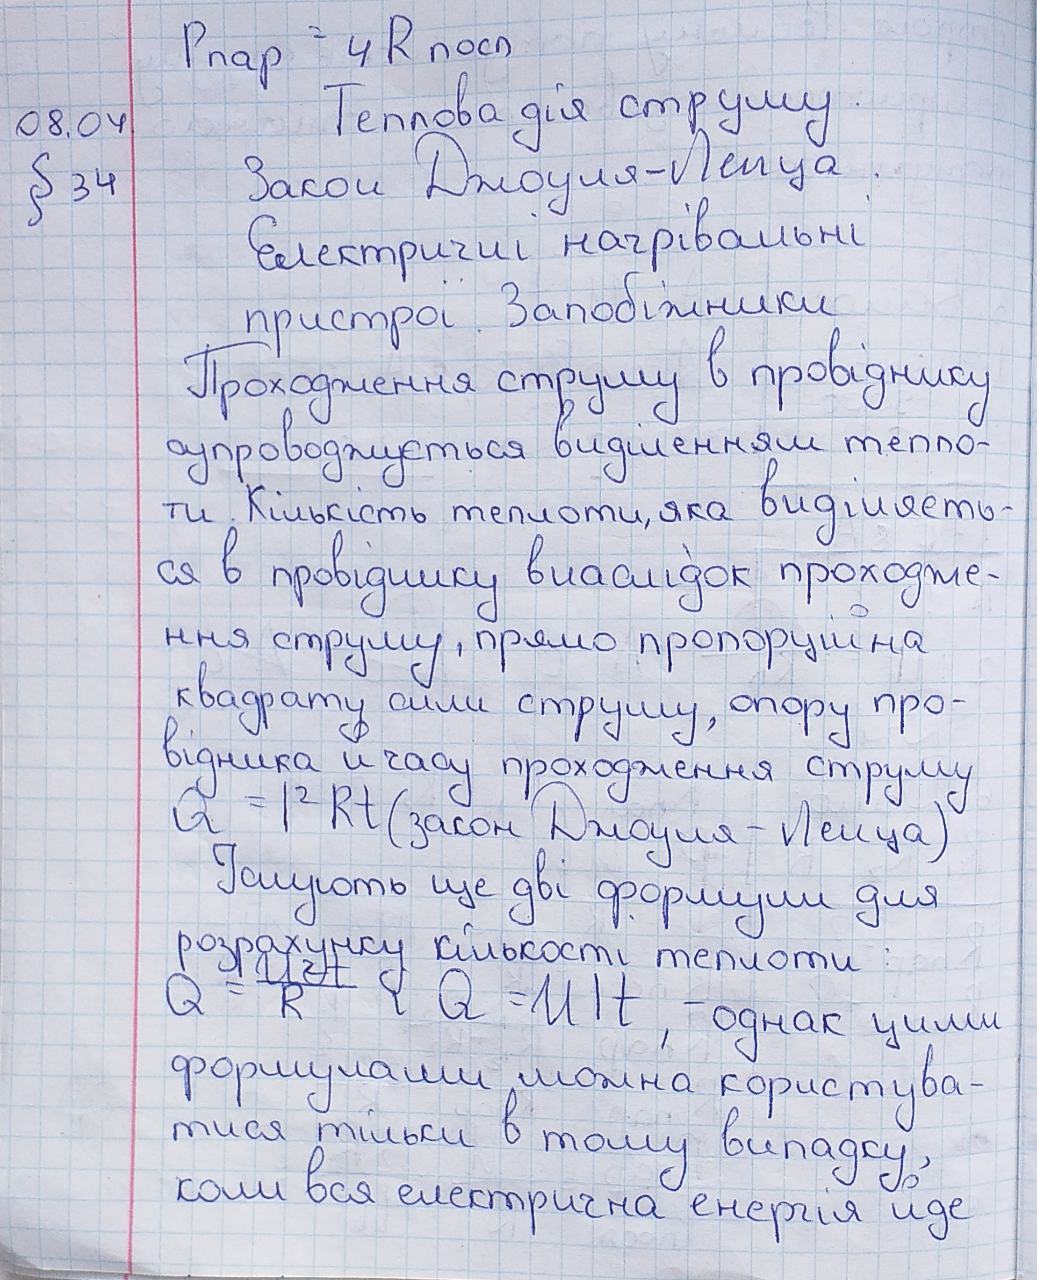 Pпар = 4Rпосл
08.04 Теплова дія струму.
§ 34 Закон Джоуля-Ленца.
Електричні нагрівальні
пристрої. Запобіжники
Проходження струму в провіднику
супроводжується виділенням тепло-
ти. Кількість теплоти, яка виділяєть-
ся в провіднику внаслідок проходже-
ння струму, прямо пропорційна
квадрату сили струму, опору про-
відника й часу проходження струму
Q = I²Rt (закон Джоуля-Ленца)
Існують ще дві формули для
розрахунку кількості теплоти:
Q = U²t/R і Q = UIt, - однак цими
формулами можна користува-
тися тільки в тому випадку,
коли вся електрична енергія йде